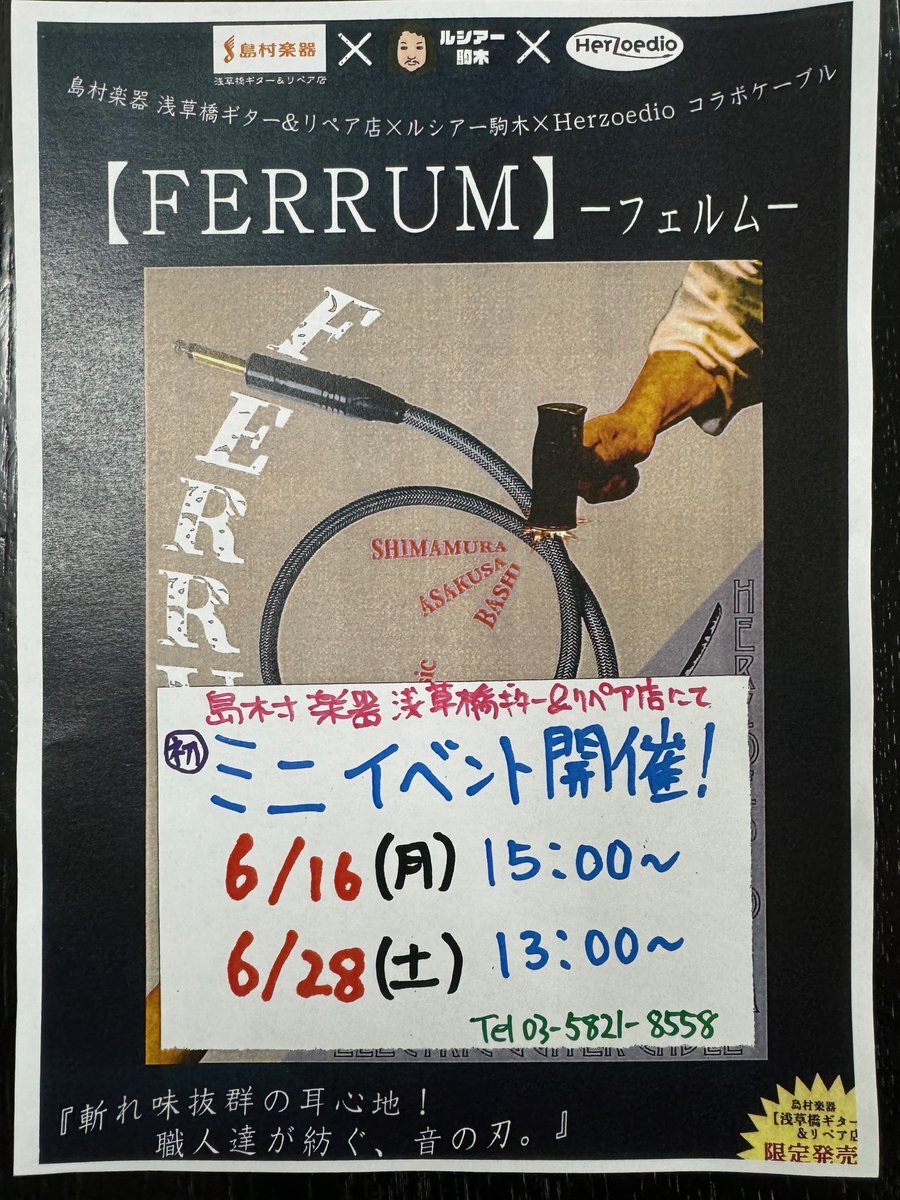 島村楽器 × ルシアー × Herzoedio
浅草橋ギター&リペア店 駒木
島村楽器 浅草橋ギター&リペア店×ルシアー駒木×Herzoedio コラボケーブル
【FERRUM】ーフェルムー
FERR
SHIMAMURA
ASAKUSA
BASHI
島村楽器 浅草橋ギター&リペア店にて
初 ミニイベント開催!
6/16(月) 15:00~
6/28(土) 13:00~
Tel 03-5821-8558
『斬れ味抜群の耳心地!
職人達が紡ぐ、音の刃。』
島村楽器
【浅草橋ギター
&リペア店
限定発売